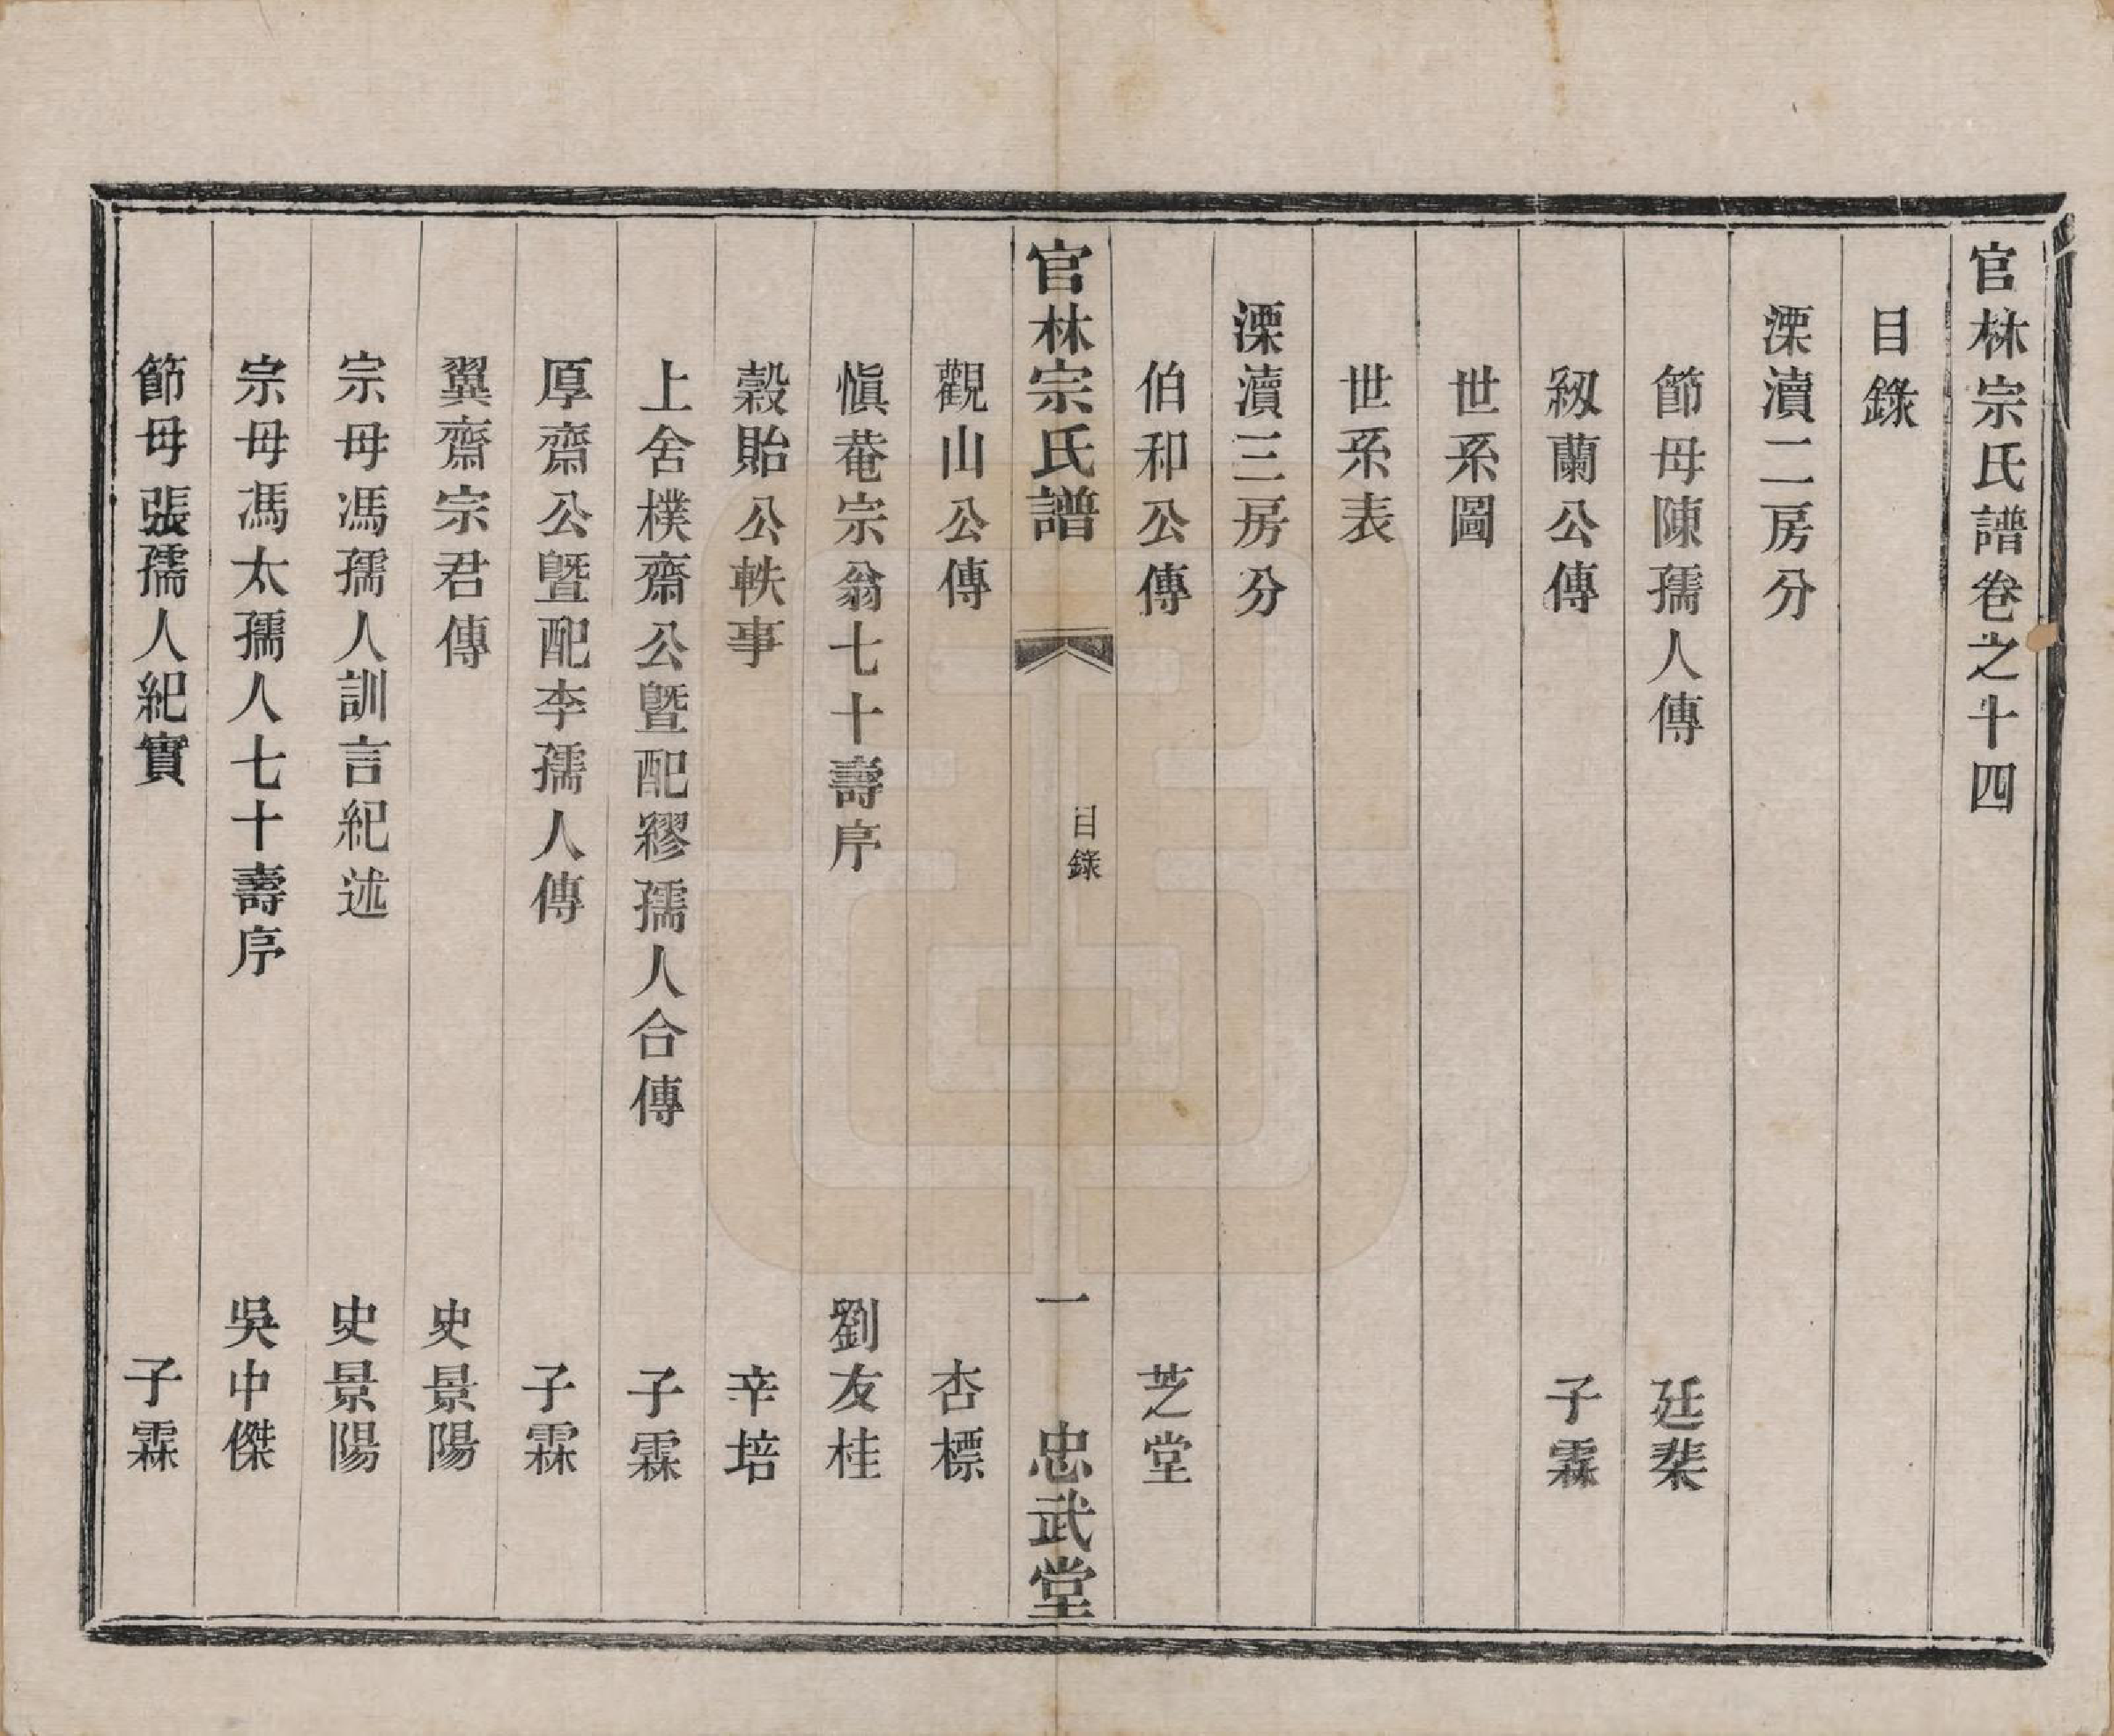 官林宗氏譜卷之十四
目錄
溧瀆二房分
節母陳孺人傳 廷棐
紉蘭公傳 子霖
世系圖
世系表
溧瀆三房分
伯和公傳 芝堂
官林宗氏譜 目錄 一 忠武堂
觀山公傳 杏標
愼菴宗翁七十壽序 劉友桂
穀貽公軼事 辛培
上舍樸齋公暨配繆孺人合傳 子霖
厚齋公暨配李孺人傳 子霖
翼齋宗君傳 史景陽
宗母馮孺人訓言紀述 史景陽
宗母馮太孺人七十壽序 吳中傑
節母張孺人紀實 子霖